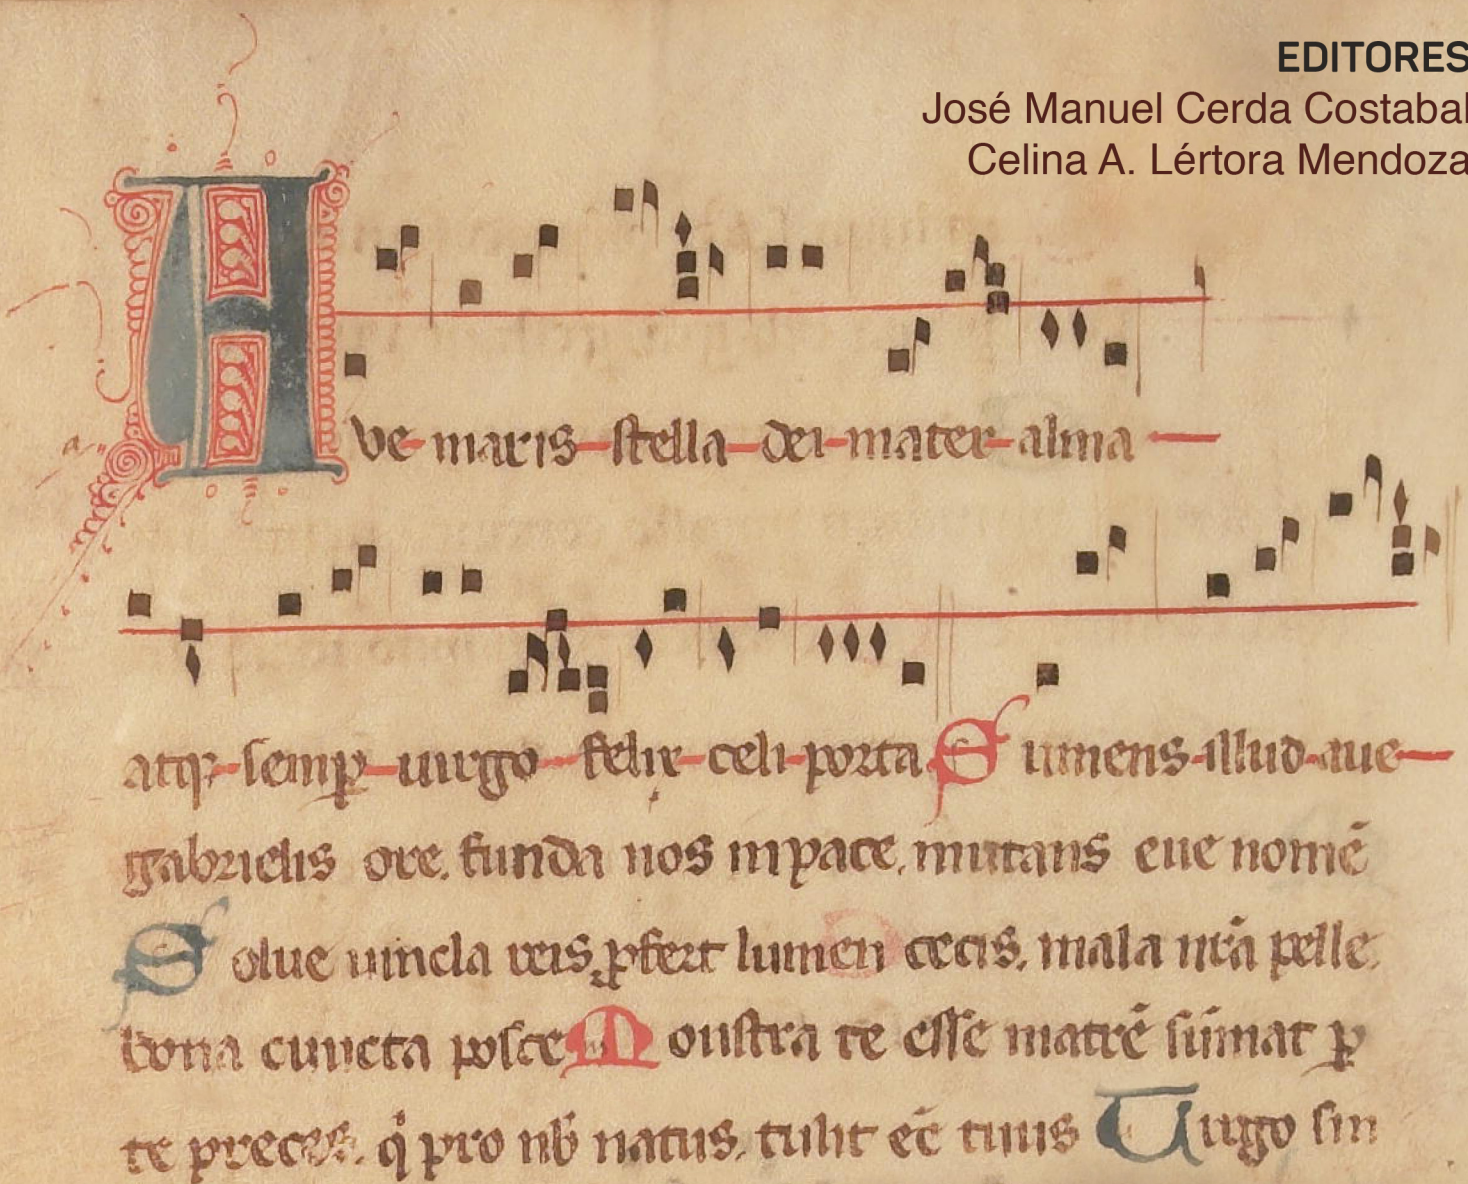 EDITORES
José Manuel Cerda Costabal
Celina A. Lértora Mendoza
Ave maris stella dei mater alma
atqȝ semꝑ uirgo felix celi porta Sumens illud aue
gabrielis ore. funda nos in pace. mutans eue nomē
Solue uincla reis. ꝓfert lumen cecis. mala nr̄a pelle.
bona cuncta posce Monstra te esse matrē sūmat ꝑ
te preces. q̇ pro nb̄ natus. tulit eē tuus Uirgo sin